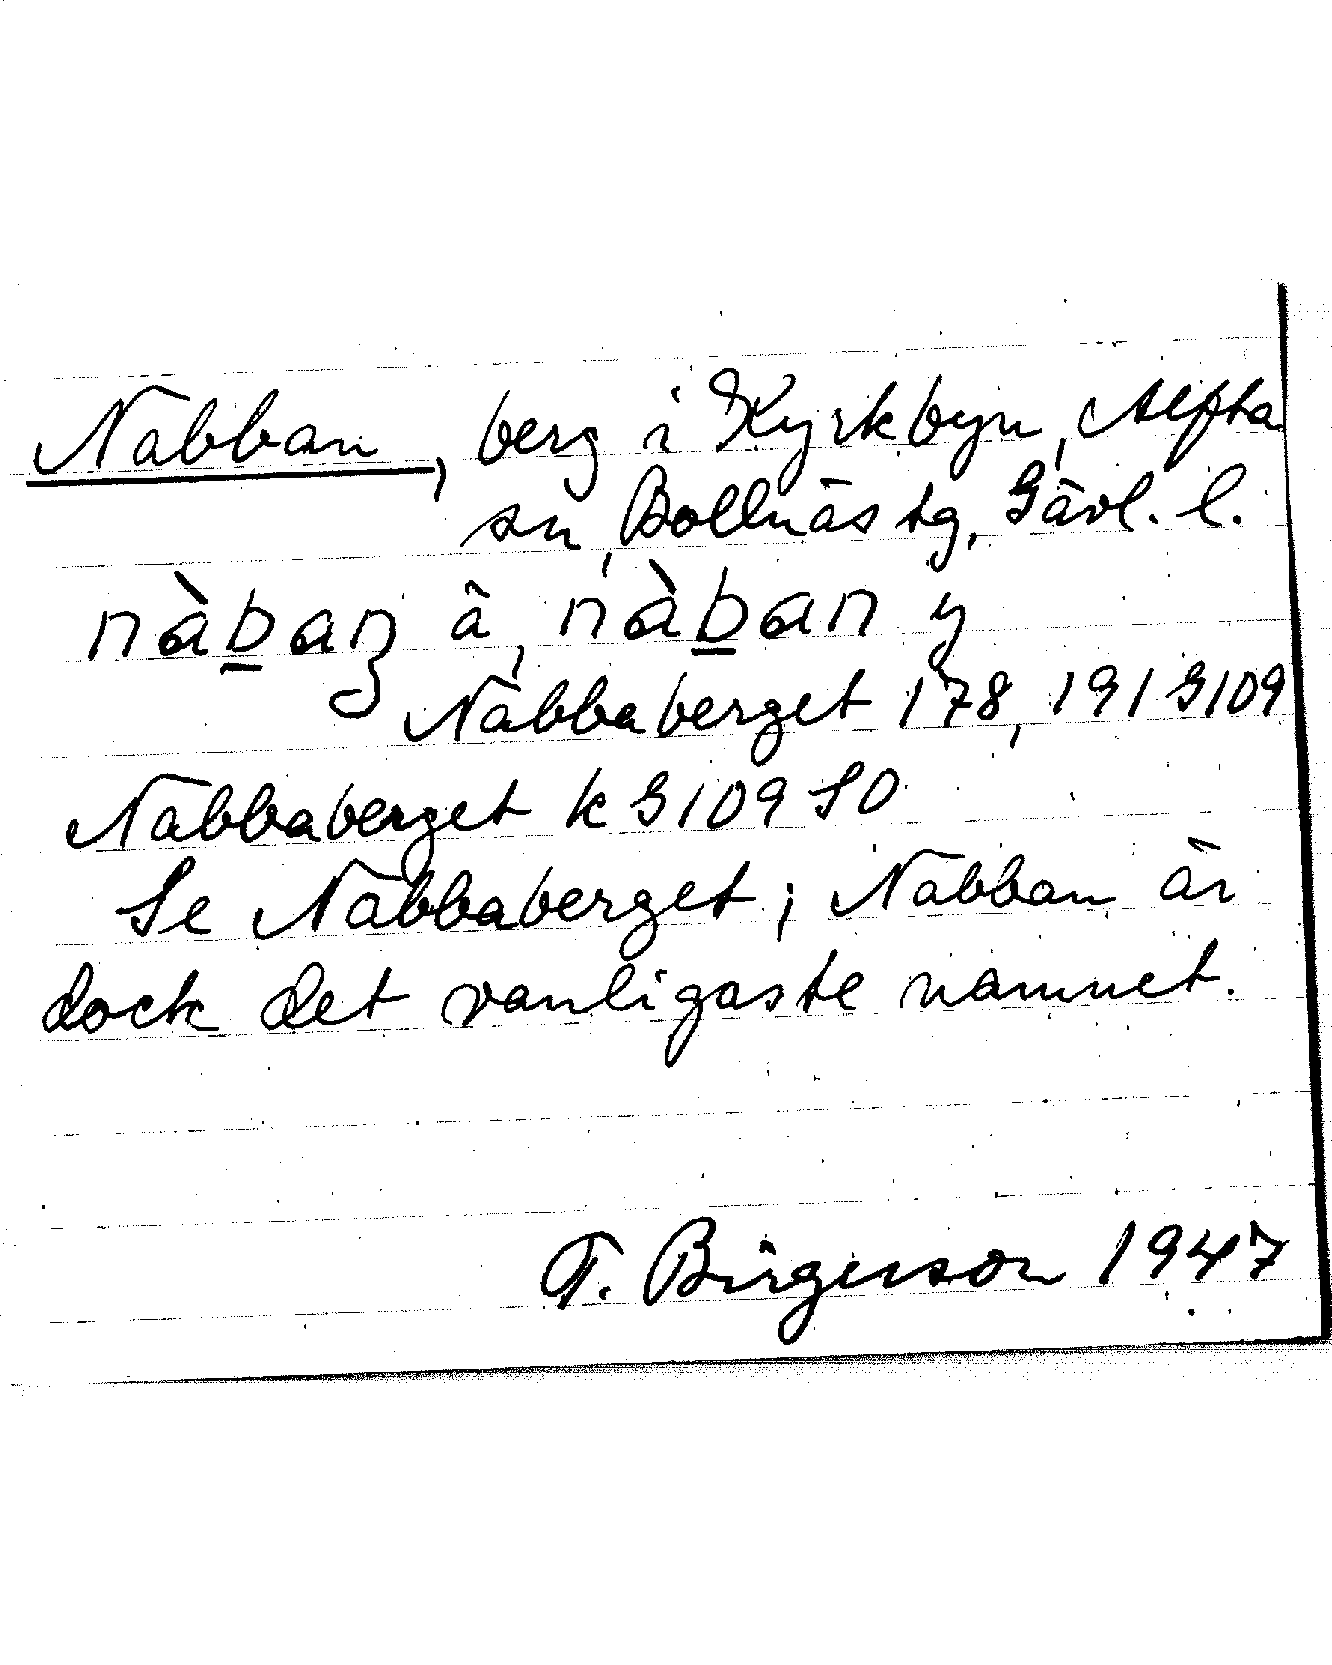 Nabban, berg i Kyrkbyn, Alfta
sn, Bollnäs tg, Gävl. l.
nàb̲aŋ ä, nàb̲an y
Nabbaberget 178, 191 G109
Nabbaberget k G109 SO
Se Nabbaberget; Nabban är
dock det vanligaste namnet.
T. Birgerson 1947